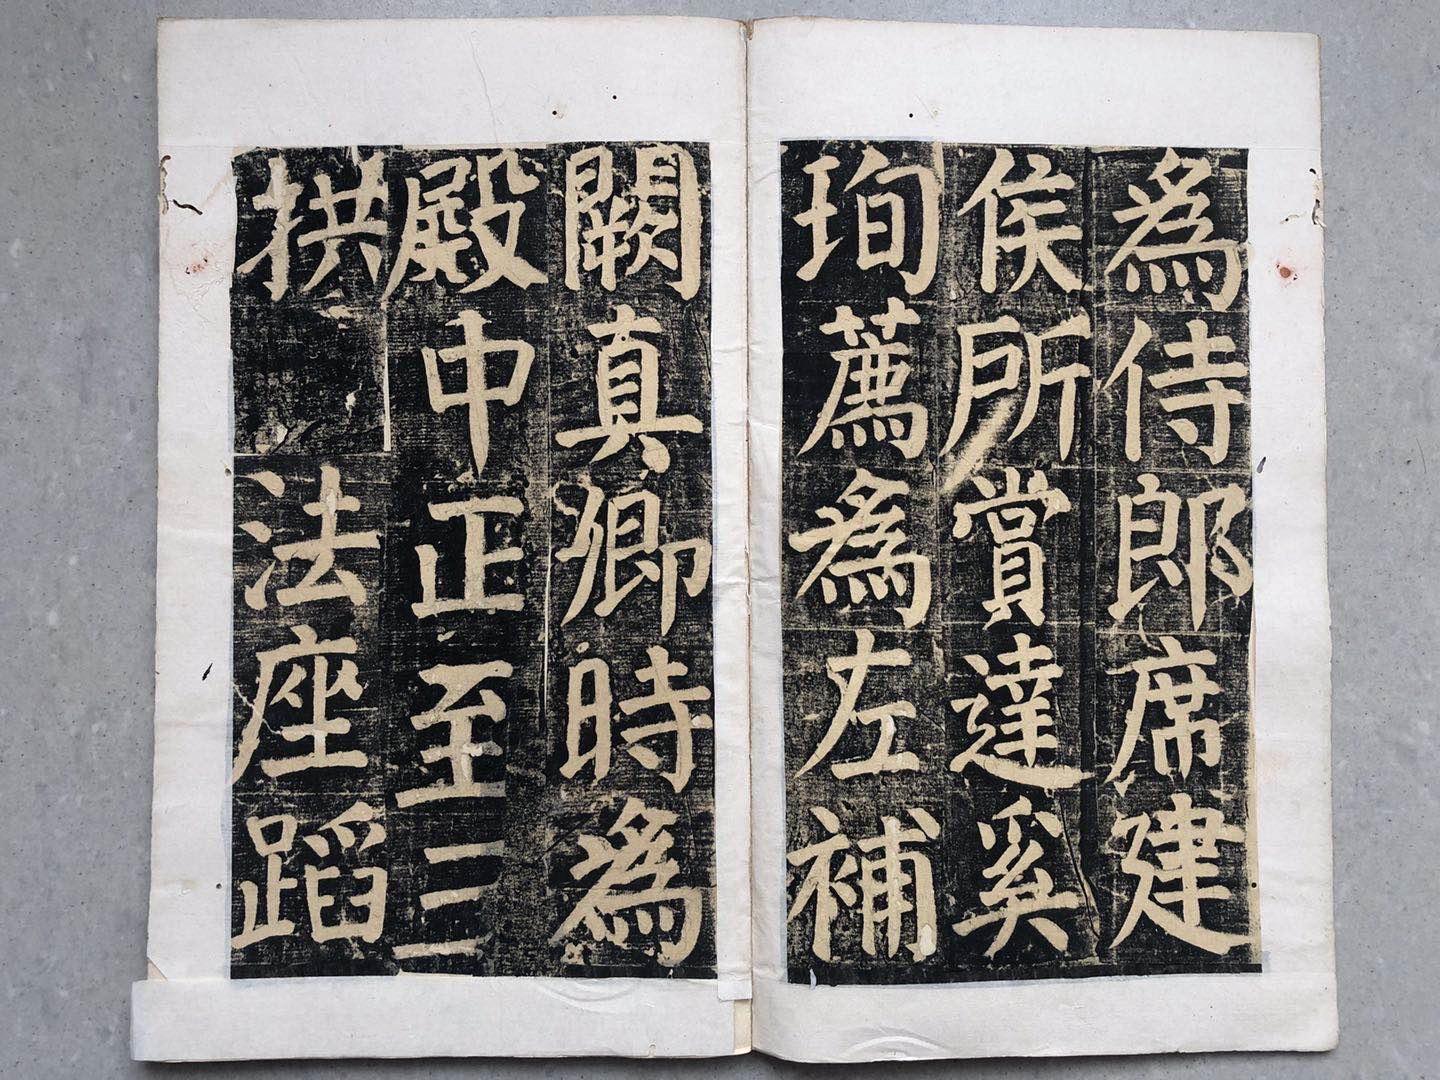 為侍郎席建
侯所賞達奚
珣薦為左補
闕真卿時為
殿中正至三
拱法座蹈